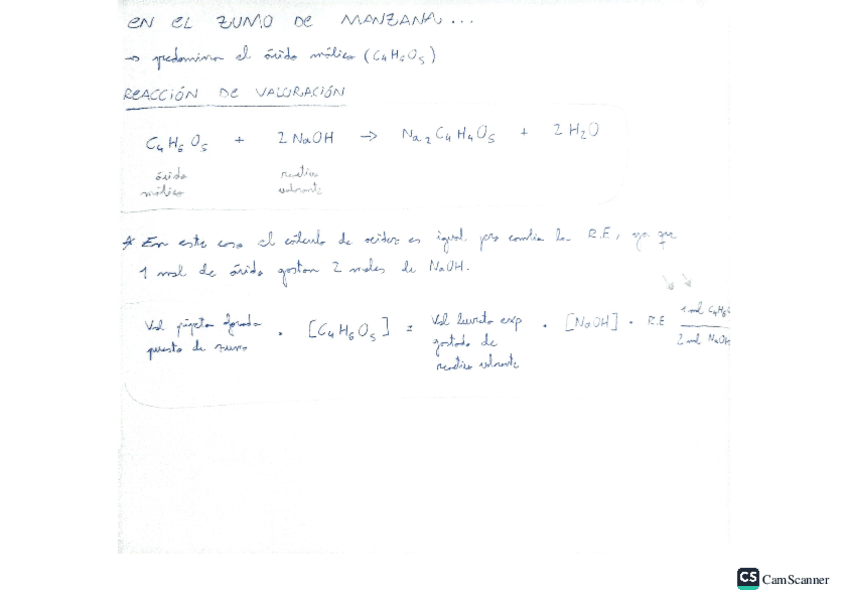 EN EL ZUMO DE MANZANA...
→ predomina el ácido málico (C4H6O5)
REACCIÓN DE VALORACIÓN
C4H6O5 + 2 NaOH → Na2C4H4O5 + 2 H2O
ácido málico
reactivo valorante
* En este caso el cálculo de acidez es igual pero cambia la R.E, ya que
1 mol de ácido gastan 2 moles de NaOH.
Vol pipeta aforada puesto de zumo · [C4H6O5] = Vol bureta exp gastado de reactivo valorante · [NaOH] · R.E 1 mol C4H6O / 2 mol NaOH
CS CamScanner